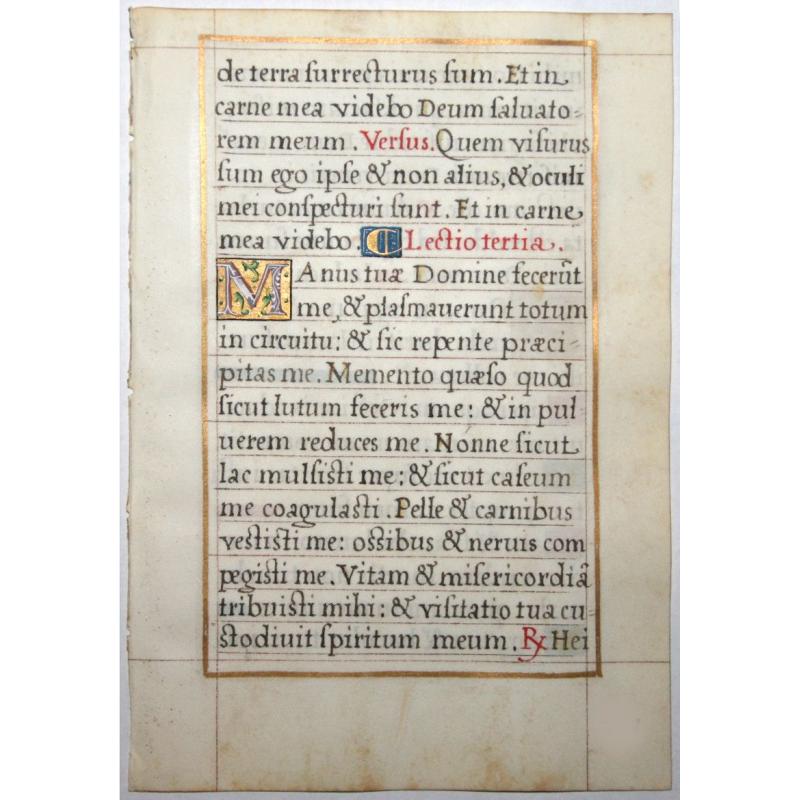 de terra ſurrecturus ſum. Et in
carne mea videbo Deum ſaluato-
rem meum. Verſus. Quem viſurus
ſum ego ipſe & non alius, & oculi
mei conſpecturi ſunt. Et in carne
mea videbo. Lectio tertia.
MAnus tuæ Domine fecerūt
me, & plaſmauerunt totum
in circuitu: & ſic repente præci-
pitas me. Memento quæſo quod
ſicut lutum feceris me: & in pul
uerem reduces me. Nónne ſicut
lac mulſiſti me: & ſicut caſeum
me coagulaſti. Pelle & carnibus
veſtiſti me: oſſibus & neruis com
pegiſti me. Vitam & miſericordiā
tribuiſti mihi: & viſitatio tua cu-
ſtodiuit ſpiritum meum. ℞ Hei